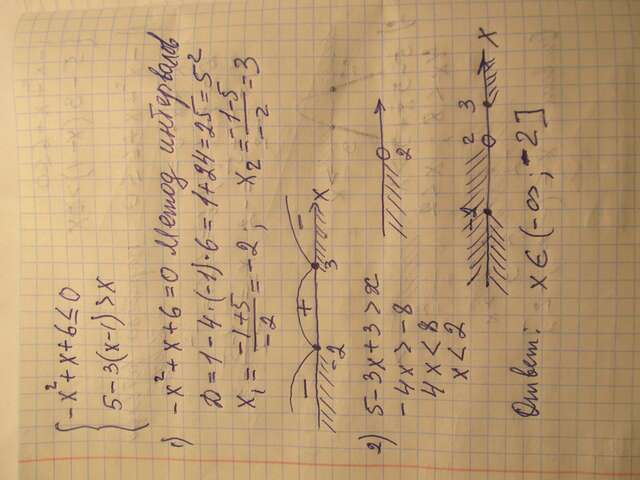 { -x² + x + 6 ≤ 0
5 - 3(x-1) > x
1) -x² + x + 6 = 0 Метод интервалов
D = 1 - 4·(-1)·6 = 1 + 24 = 25 = 5²
x₁ = (-1+5)/(-2) = -2, x₂ = (-1-5)/(-2) = 3
- + -
-2 3 x
2) 5 - 3x + 3 > x
-4x > -8
4x < 8
x < 2
2
-2 0 2 3 x
Ответ: x ∈ (-∞; -2]